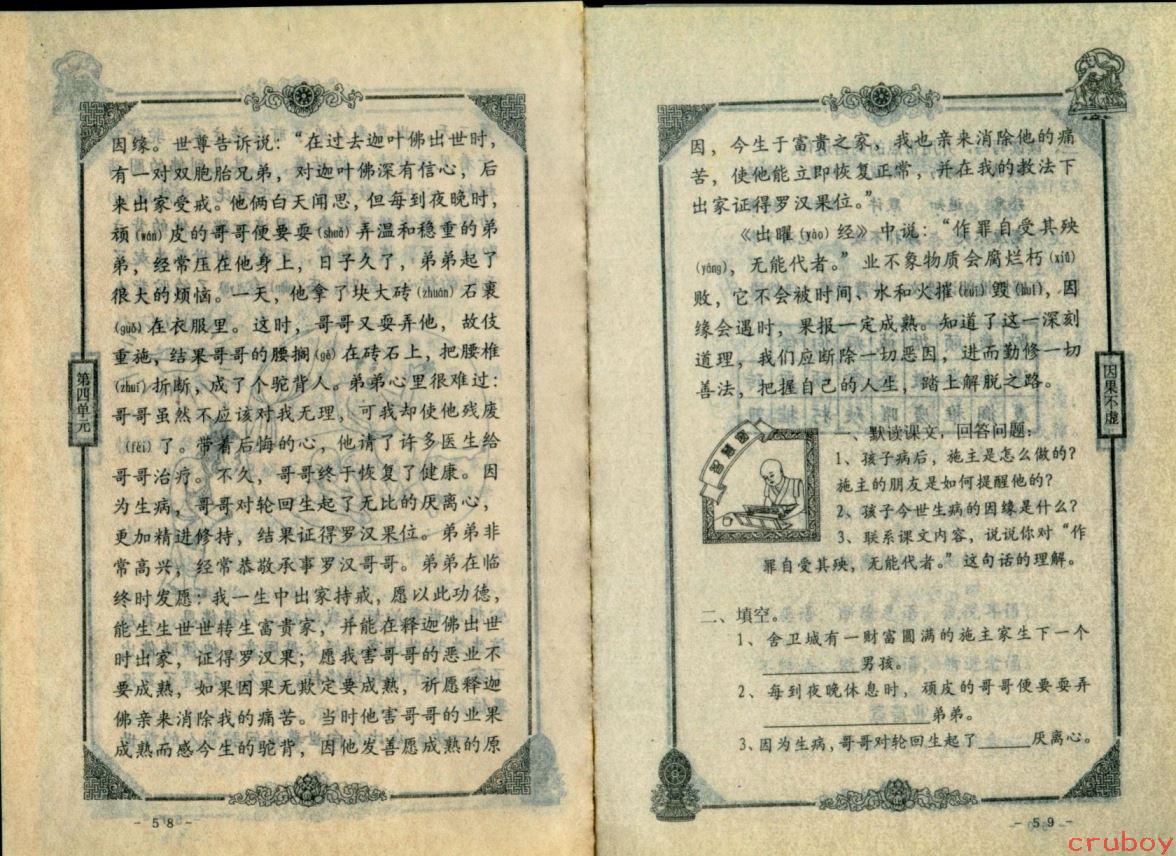 因缘。世尊告诉说：“在过去迦叶佛出世时，
有一对双胞胎兄弟，对迦叶佛深有信心，后
来出家受戒。他俩白天闻思，但每到夜晚时，
顽(wán)皮的哥哥便要耍(shuǎ)弄温和稳重的弟
弟，经常压在他身上，日子久了，弟弟起了
很大的烦恼。一天，他拿了块大砖(zhuān)石裹
(guǒ)在衣服里。这时，哥哥又耍弄他，故伎
重施，结果哥哥的腰搁(gē)在砖石上，把腰椎
(zhuī)折断，成了个驼背人。弟弟心里很难过：
哥哥虽然不应该对我无理，可我却使他残废
(fèi)了。带着后悔的心，他请了许多医生给
哥哥治疗。不久，哥哥终于恢复了健康。因
为生病，哥哥对轮回生起了无比的厌离心，
更加精进修持，结果证得罗汉果位。弟弟非
常高兴，经常恭敬承事罗汉哥哥。弟弟在临
终时发愿：我一生中出家持戒，愿以此功德，
能生生世世转生富贵家，并能在释迦佛出世
时出家，证得罗汉果；愿我害哥哥的恶业不
要成熟，如果因果无欺定要成熟，祈愿释迦
佛亲来消除我的痛苦。当时他害哥哥的业果
成熟而感今生的驼背，因他发善愿成熟的原
第四单元
- 58 -
因，今生于富贵之家，我也亲来消除他的痛
苦，使他能立即恢复正常，并在我的教法下
出家证得罗汉果位。”
《出曜(yào)经》中说：“作罪自受其殃
(yāng)，无能代者。”业不象物质会腐烂朽(xiǔ)
败，它不会被时间、水和火摧(cuī)毁(huǐ)，因
缘会遇时，果报一定成熟。知道了这一深刻
道理，我们应断除一切恶因，进而勤修一切
善法，把握自己的人生，踏上解脱之路。
因果不虚
智慧窗
一、默读课文，回答问题：
1、孩子病后，施主是怎么做的？
施主的朋友是如何提醒他的？
2、孩子今世生病的因缘是什么？
3、联系课文内容，说说你对“作
罪自受其殃，无能代者。”这句话的理解。
二、填空。
1、舍卫城有一财富圆满的施主家生下一个
________男孩。
2、每到夜晚休息时，顽皮的哥哥便要耍弄
______________弟弟。
3、因为生病，哥哥对轮回生起了_____厌离心。
- 59 -
cruboy